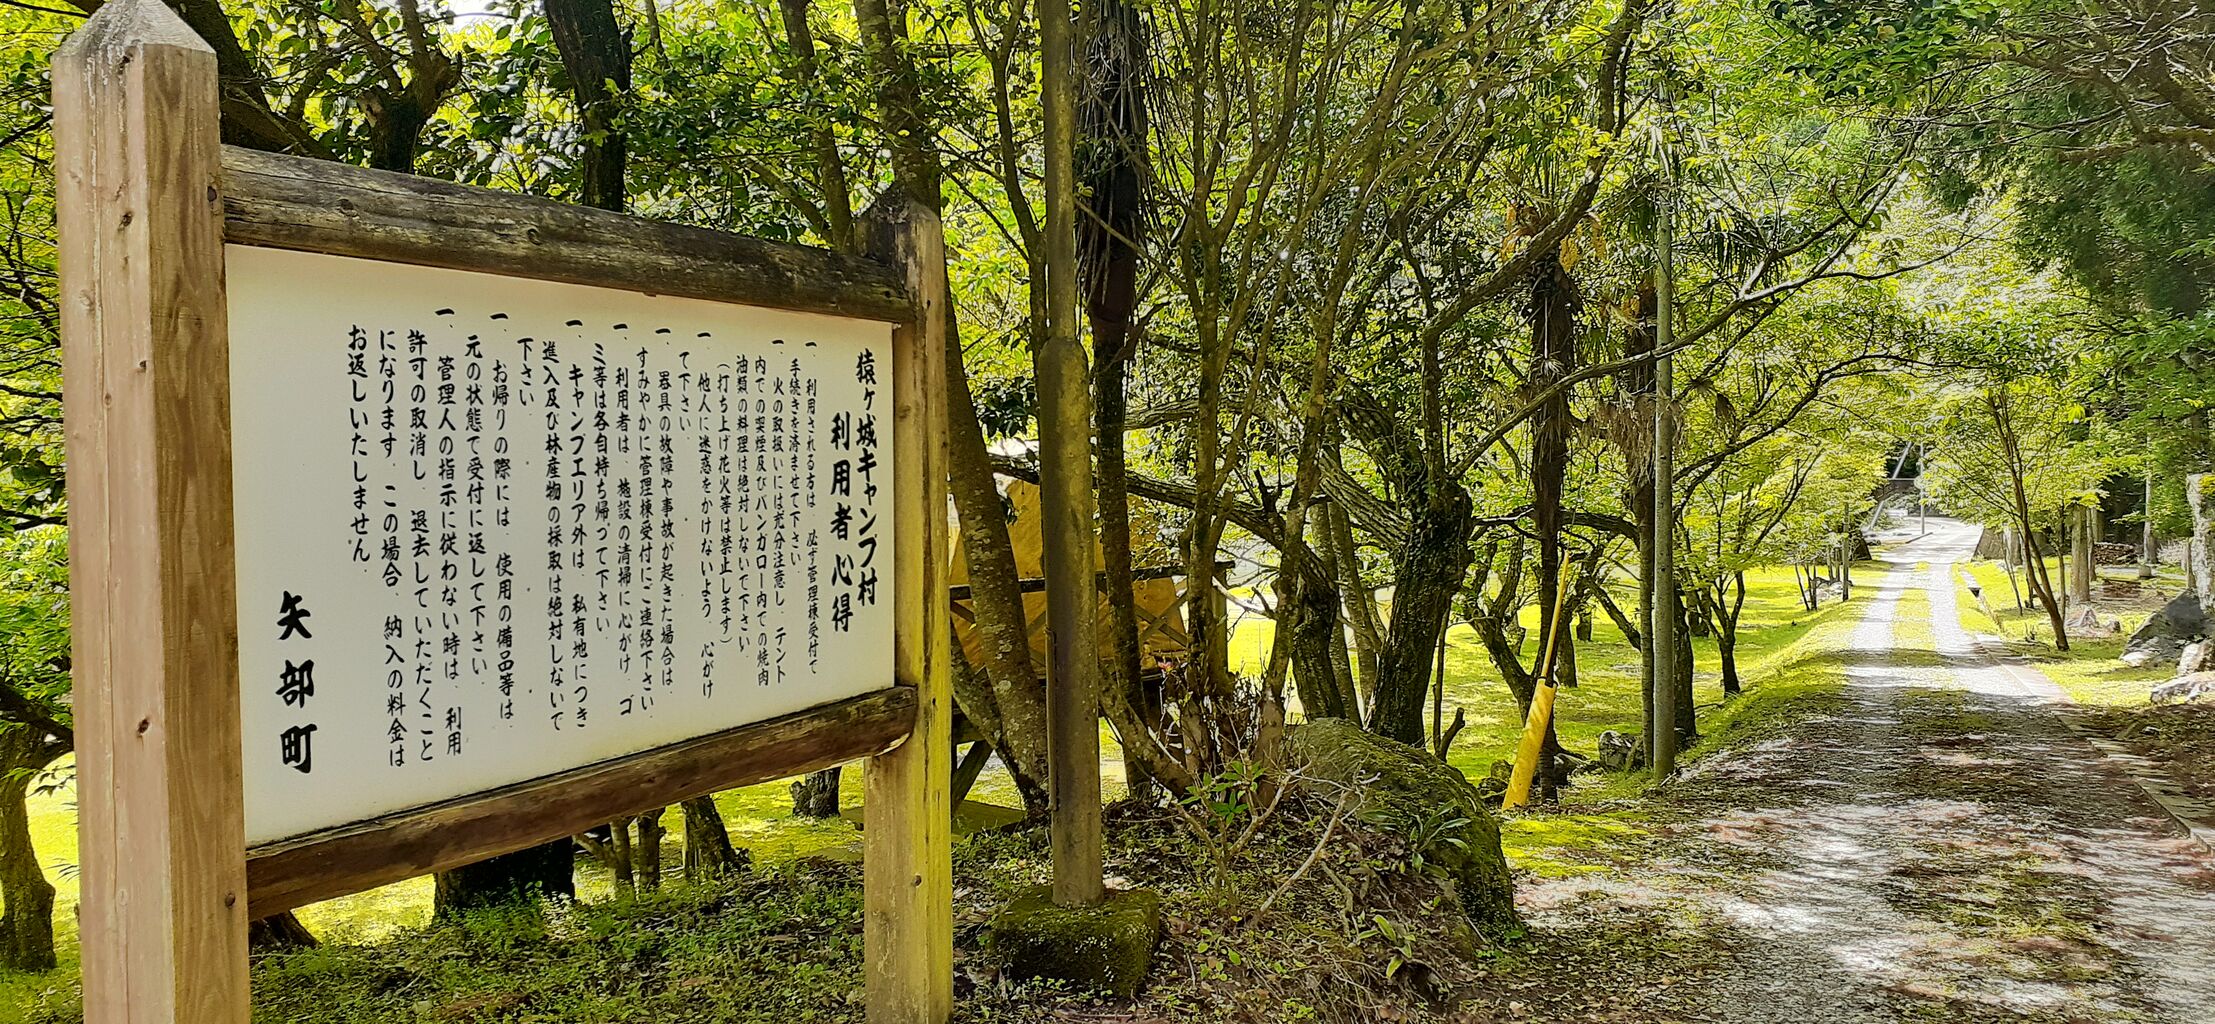 猿ヶ城キャンプ村
利用者心得
一、利用される方は、必ず管理棟受付で
手続きを済ませて下さい。
一、火の取扱いには充分注意し、テント
内での喫煙及びバンガロー内での焼肉
油類の料理は絶対しないで下さい。
(打ち上げ花火等は禁止します)
一、他人に迷惑をかけないよう、心がけ
て下さい。
一、器具の故障や事故が起きた場合は、
すみやかに管理棟受付にご連絡下さい。
一、利用者は、施設の清掃に心がけ、ゴ
ミ等は各自持ち帰って下さい。
一、キャンプエリア外は、私有地につき
進入及び林産物の採取は絶対しないで
下さい。
一、お帰りの際には、使用の備品等は、
元の状態で受付に返して下さい。
一、管理人の指示に従わない時は、利用
許可の取消し、退去していただくこと
になります。この場合、納入の料金は
お返しいたしません。
矢部町